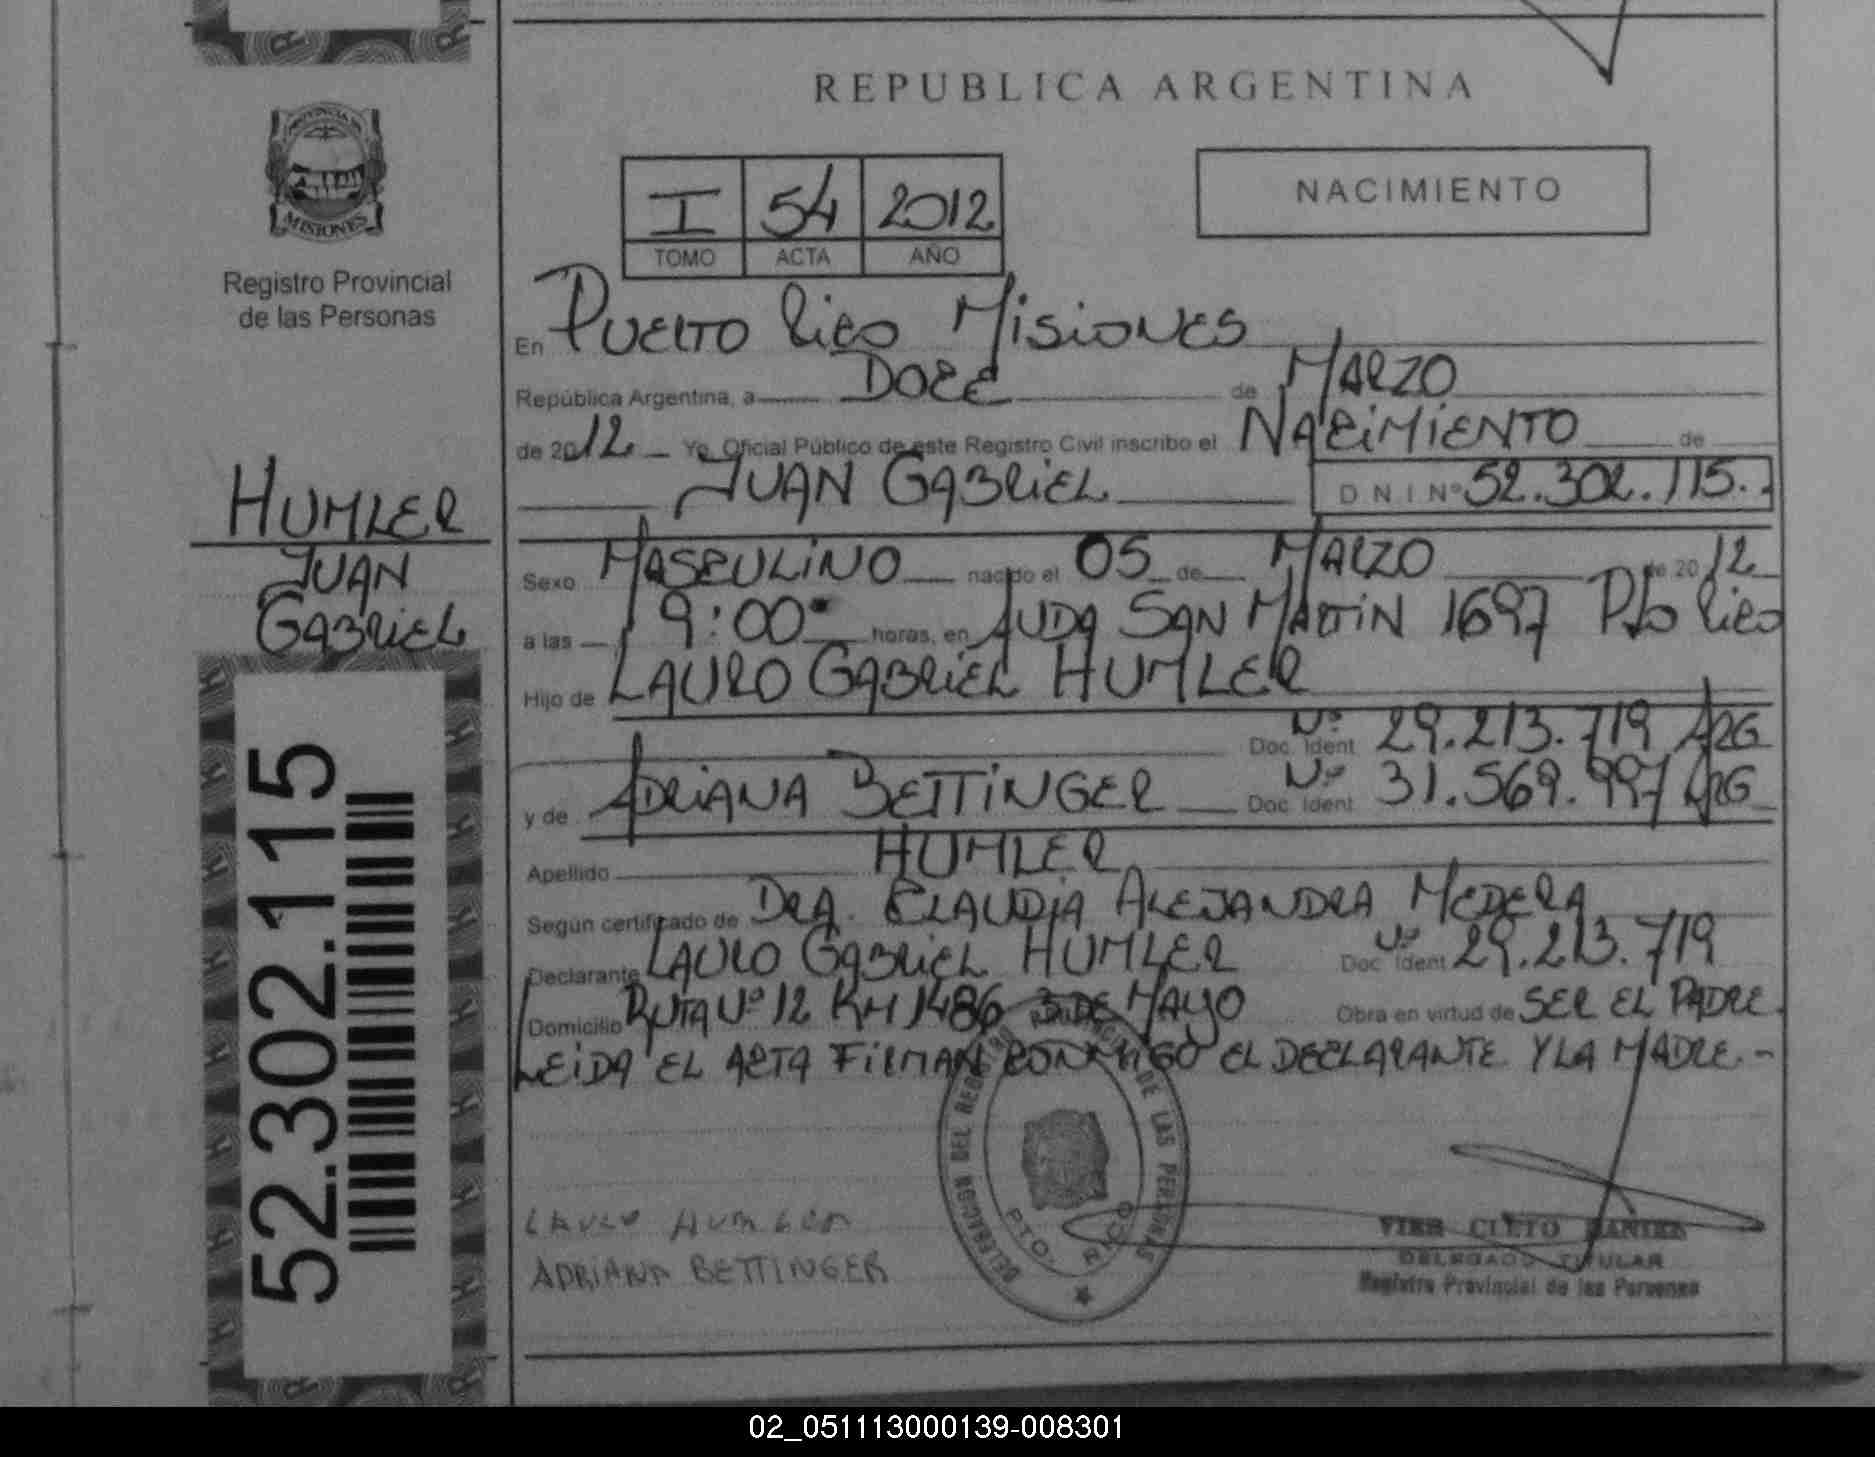 REPUBLICA ARGENTINA
PROVINCIA DE
MISIONES
Registro Provincial
de las Personas
I 54 2012
TOMO ACTA AÑO
NACIMIENTO
En PUERTO RICO MISIONES
República Argentina, a DOCE de MARZO
de 2012 Yo, Oficial Público de este Registro Civil inscribo el NACIMIENTO de
JUAN GABRIEL DNI Nº 52.302.115.
HUMLER
JUAN
GABRIEL
Sexo MASCULINO nacido el 05 de MARZO de 2012
a las 19:00 horas, en AVDA SAN MARTIN 1697 Pto RICO
Hijo de LAURO GABRIEL HUMLER
Doc. Ident Nº 29.213.719 ARG
y de ADRIANA BETTINGER Doc. Ident Nº 31.569.997 ARG
Apellido HUMLER
Según certificado de DRA. CLAUDIA ALEJANDRA MEDERA
Declarante LAURO GABRIEL HUMLER Doc Ident Nº 29.213.719
Domicilio RUTA Nº 12 KM 1486 3 DE MAYO Obra en virtud de SER EL PADRE
LEIDA EL ACTA FIRMAN CONMIGO EL DECLARANTE Y LA MADRE.-
52.302.115
DELEGACION DEL REGISTRO PROVINCIAL DE LAS PERSONAS
PTO. RICO
LAURO HUMLER
ADRIANA BETTINGER
CLETO DANIEL
DELEGADO TITULAR
Registro Provincial de las Personas
02_051113000139-008301